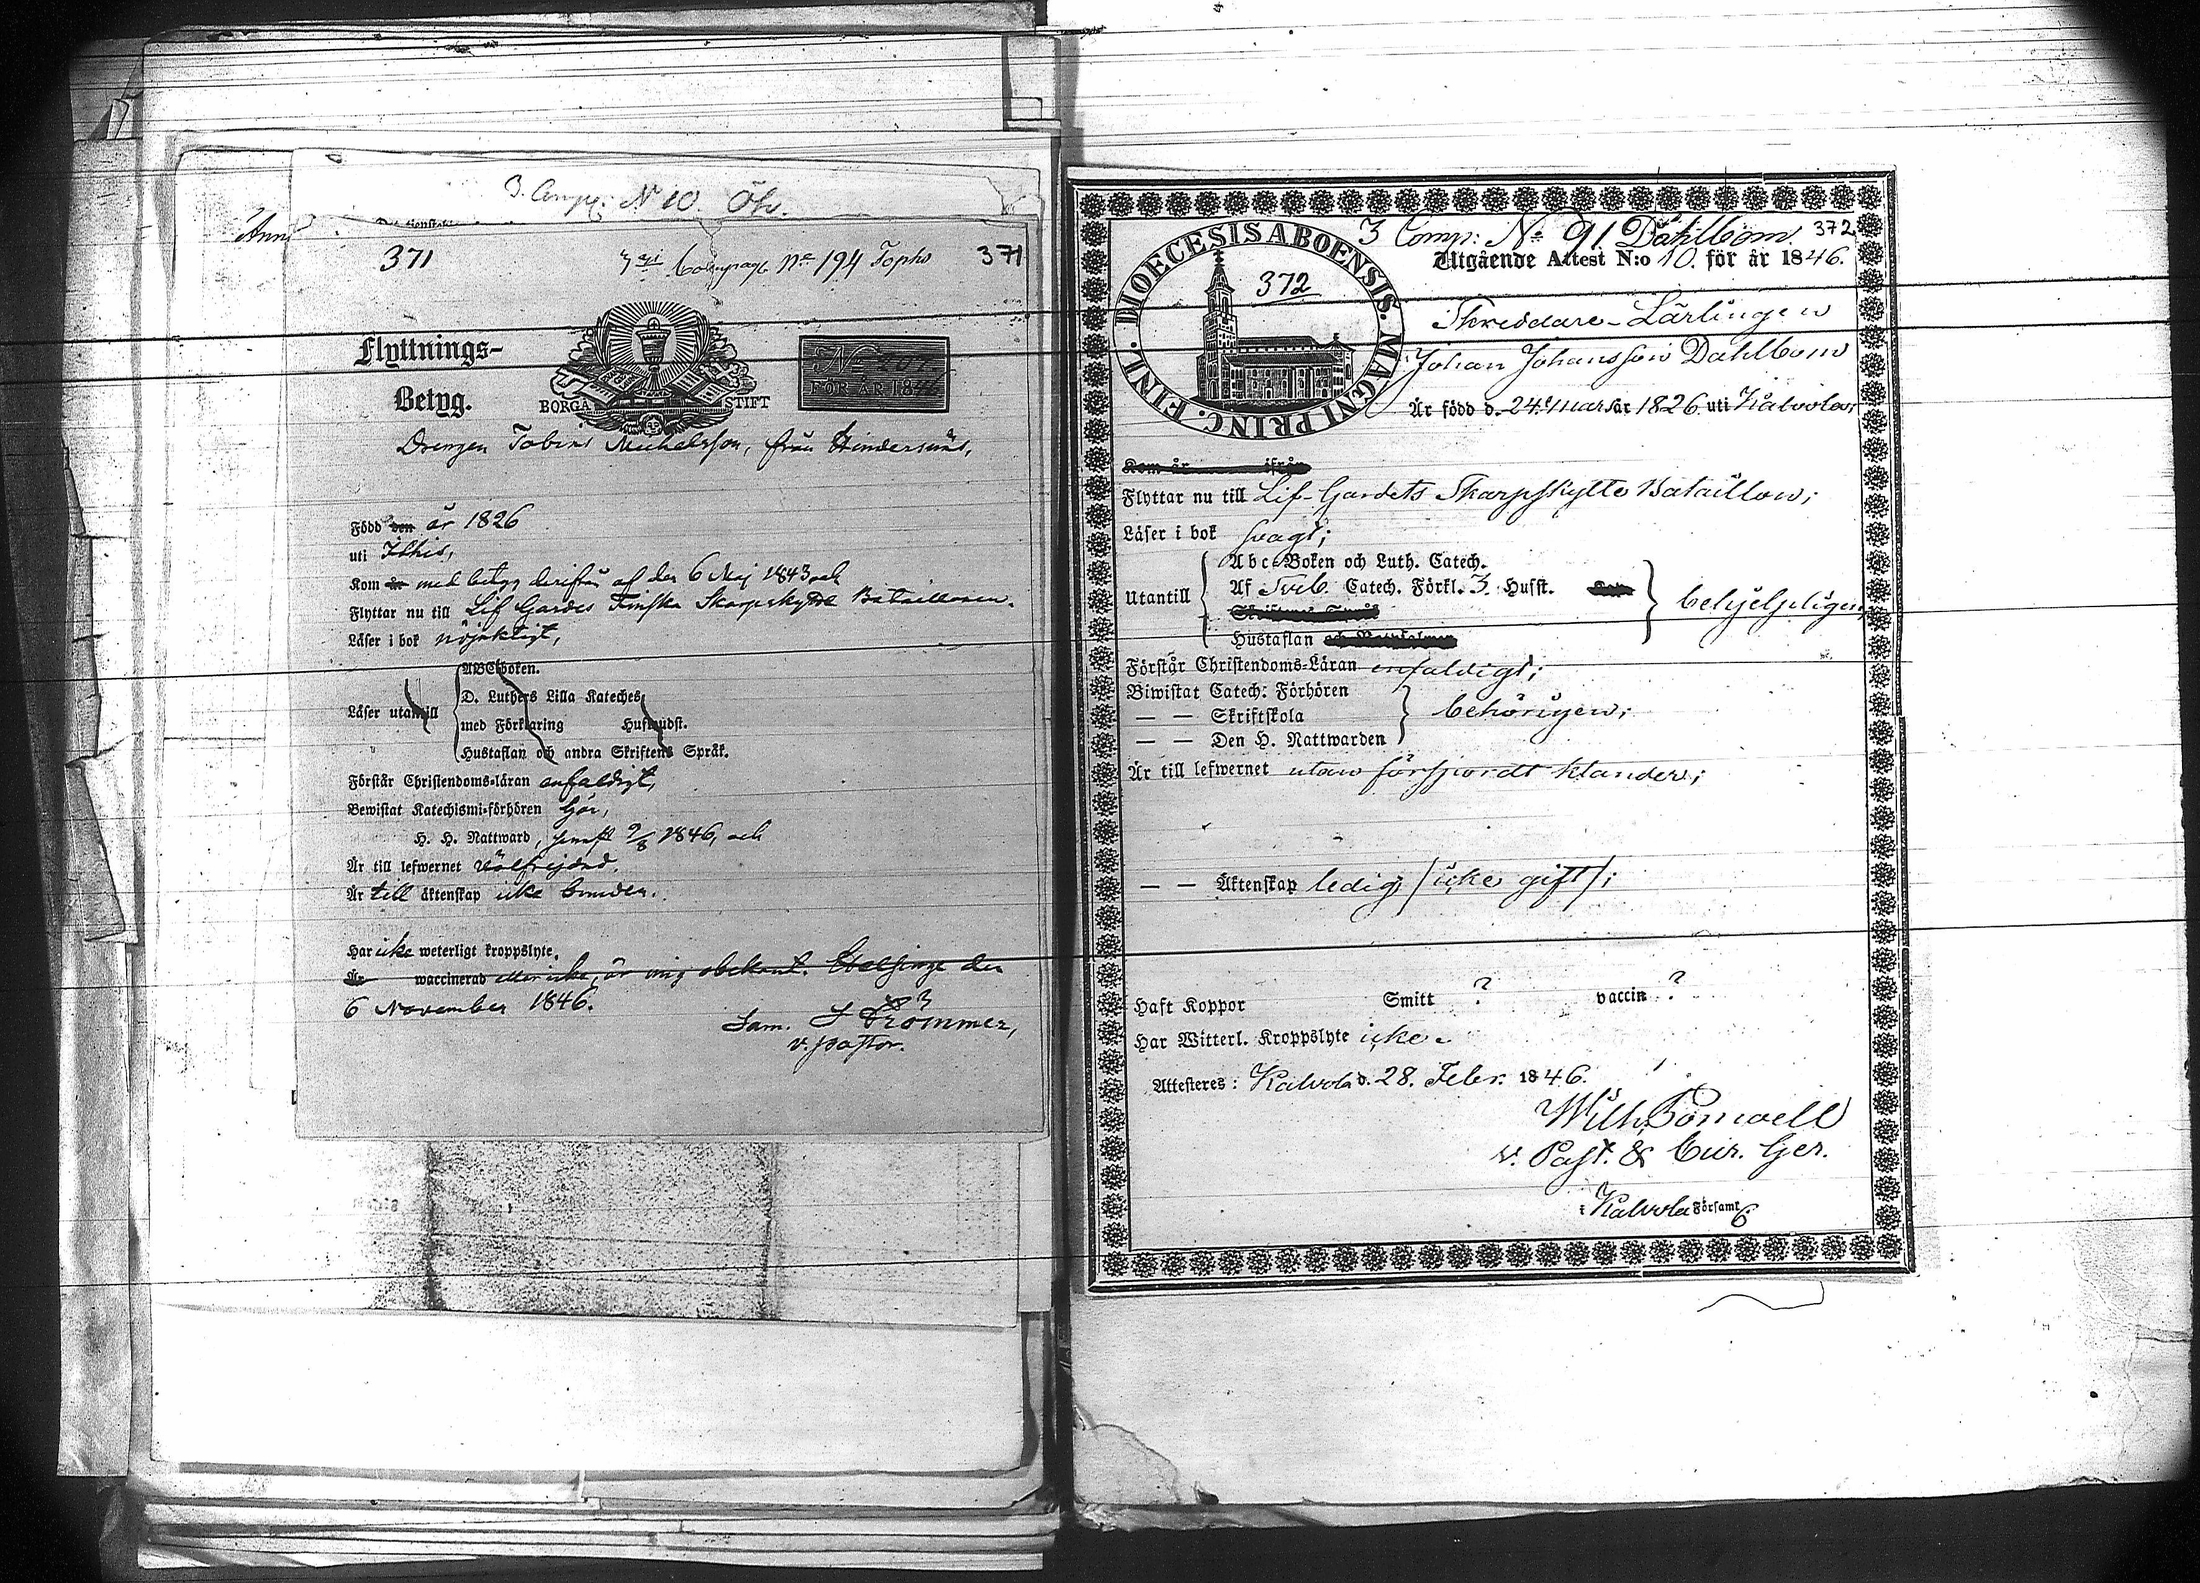 3. Comp: No 10. Öhr.
371
3dje Compagt No 194 Topho
371
Flyttnings-
Betyg.
BORGÅ STIFT
No
FÖR ÅR 1846
Drengen Tobias Michelsson, från Hindersnäs,
Född den år 1826
uti Ithis,
Kom år med betyg derifrån af den 6 Maj 1843 och
Flyttar nu till Lif Gardes Finska Skarpskytte Bataillonen.
Läser i bok nöjaktigt,
ABCboken.
D. Luthers Lilla Kateches
Läser utantill
med Förklaring Husandst.
Hustaflan och andra Skriftens Språk.
Förstår Christendoms-läran enfaldigt,
Bewistat Katechismi-förhören Gör,
H. H. Nattward, senast 9/8 1846, och
Är till lefwernet Välfrejdad.
Är till äktenskap icke bunden.
Har icke weterligt kroppslyte.
Är waccinerad eller icke, är mig obekant. Helsinge den
6 November 1846.
Sam. J Brommer,
v. pastor.
3 Comp: No 91. Dahlbom. 372
Utgående Attest N:o 10. för år 1846.
DIOECESIS ABOENSIS. MAGNI PRINC. FINL.
372
Skreddare-Lärlingen
Johan Johansson Dahlbom
Är född d. 24 Mars år 1826 uti Kalvola;
Kom år ifrån
Flyttar nu till Lif-Gardets Skarpskytte Bataillon;
Läser i bok svagt;
Abc-Boken och Luth. Catech.
Utantill Af Sveb. Catech. Förkl. 3. Husst. behjelpligen,
Skriftenes Språk
Hustaflan och Botpsalmer
Förstår Christendoms-Läran enfaldigt;
Biwistat Catech: Förhören
— — Skriftskola behörigen;
— — Den H. Nattwarden
Är till lefwernet utan försport klander;
— — Äktenskap ledig /icke gift/;
Haft Koppor Smitt ? vaccin ?
Har Witterl. Kroppslyte icke.
Attesteres: Kalvola d. 28. Febr. 1846.
Wilh. Pomoell
v. Past. & Cur. Ger.
i Kalvola Församl.